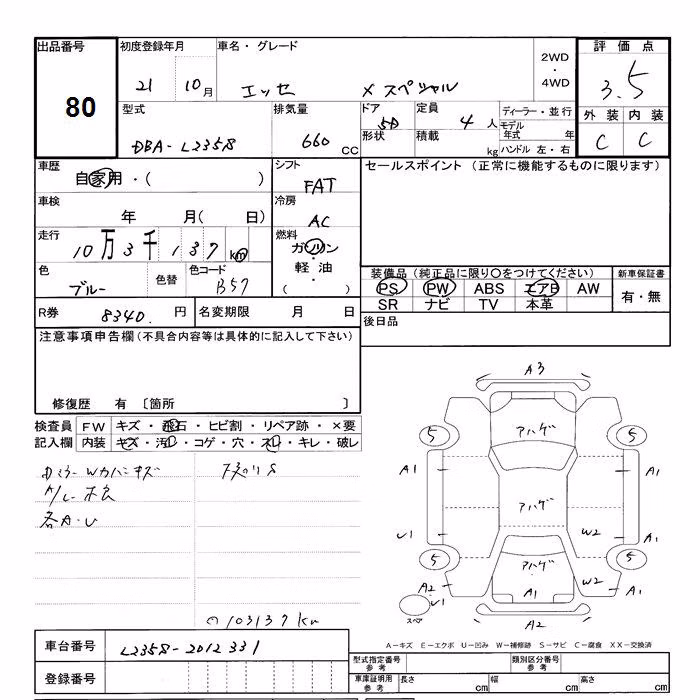 出品番号 初度登録年月 車名・グレード 2WD・4WD 評価点
80 21 10月 エッセ メスペシャル 3.5
型式 排気量 ドア 定員 ディーラー・並行 外装 内装
DBA-L235S 660 CC 5D 4人 モデル年式 年 C C
形状 積載 kg ハンドル 左・右
車歴 シフト セールスポイント (正常に機能するものに限ります)
自家用・( ) FAT
車検 冷房
年 月( 日) AC
走行 燃料
10万3千137 km ガソリン・軽油・( )
色 色替 色コード 装備品 (純正品に限り○をつけてください) 新車保証書
ブルー B57 PS PW ABS エアB AW 有・無
SR ナビ TV 本革
R券 8340 円 名変期限 月 日 後日品
注意事項申告欄(不具合内容等は具体的に記入して下さい)
修復歴 有 〔箇所 〕
検査員 FW キズ・飛石・ヒビ割・リペア跡・×要
記入欄 内装 キズ・汚レ・コゲ・穴・スレ・キレ・破レ
Dミラーwカバーキズ
A/L-不良
各A・U
下廻りS
103137km
A3
アハゲ
5 5
A1 A1
アハゲ
U1 W2 A1
5 5
アハゲ W2
A2 U1 A1 A1
スペア A2
A-キズ E-エクボ U-凹み W-補修跡 S-サビ C-腐食 XX-交換済
車台番号 L235S-2012331
登録番号
型式指定番号 参考 類別区分番号 参考
車庫証明用 参考 長さ cm 幅 cm 高さ cm